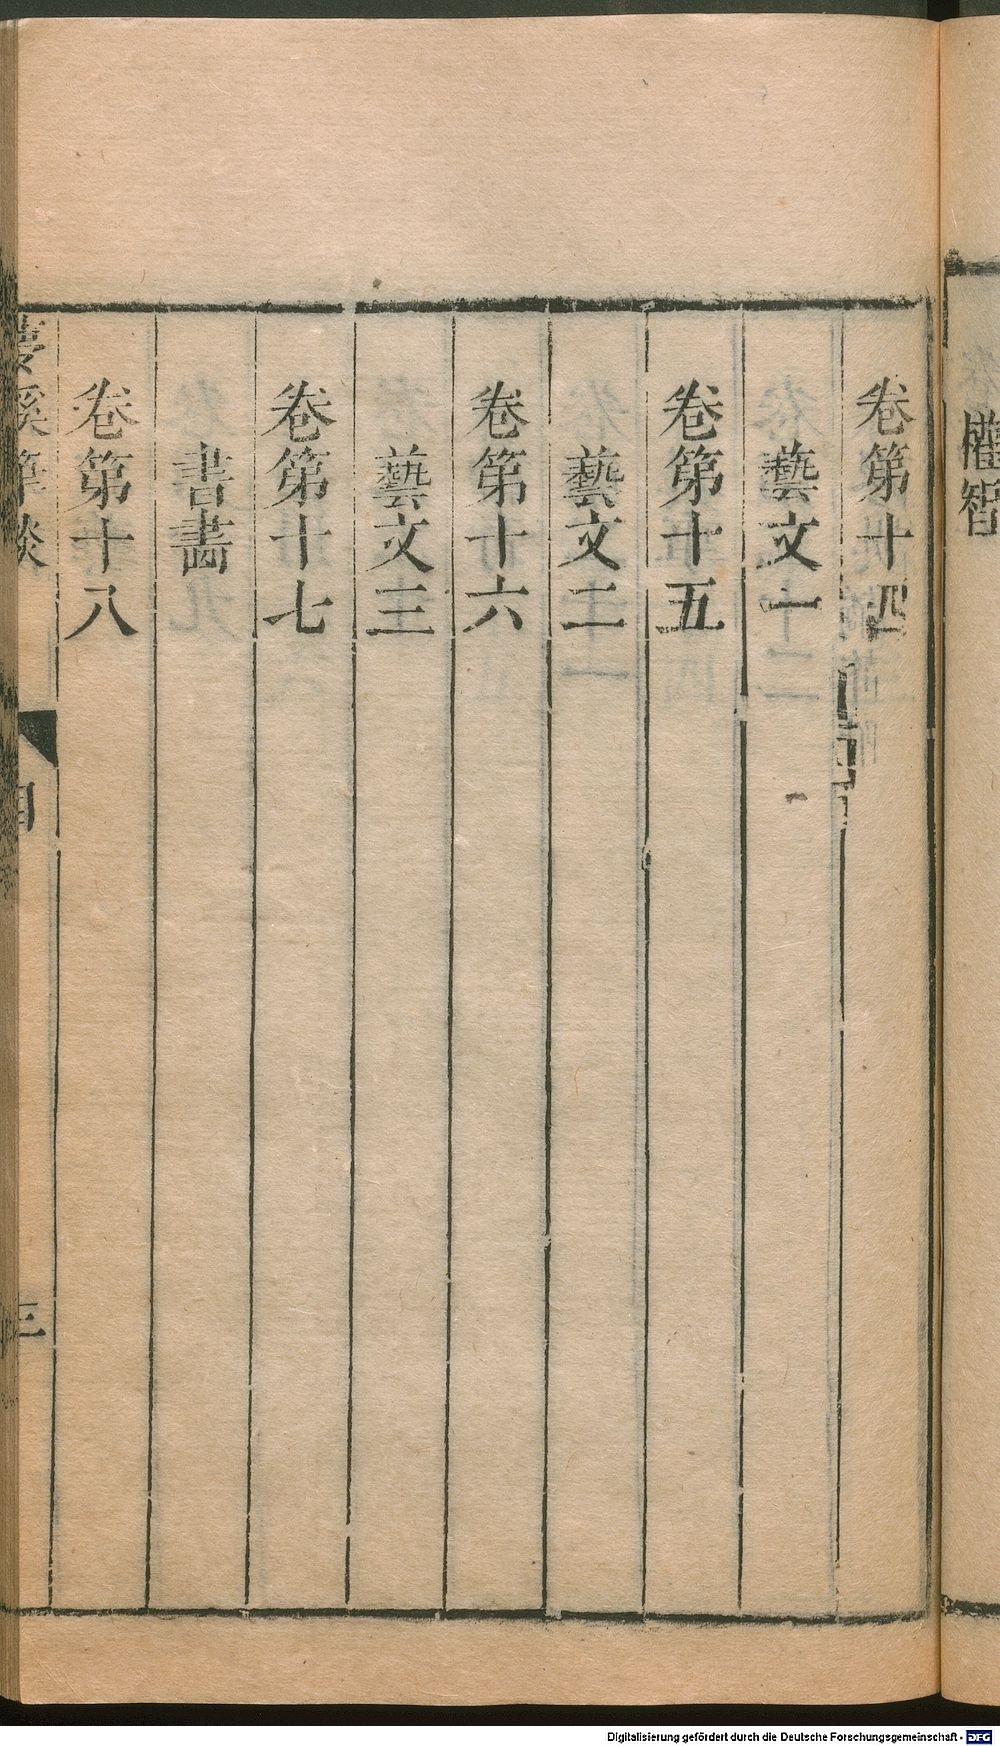 權智
卷第十四
藝文一
卷第十五
藝文二
卷第十六
藝文三
卷第十七
書畵
卷第十八
夢溪筆談
目
三
Digitalisierung gefördert durch die Deutsche Forschungsgemeinschaft - DFG